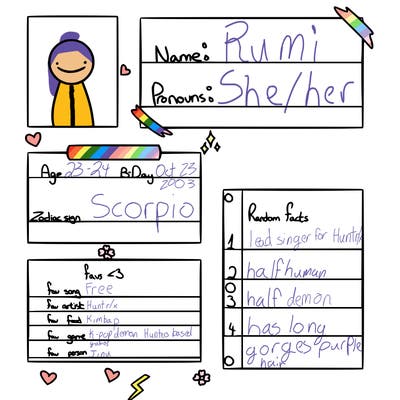 Name: Rumi
Pronouns: She/her
Age 23-24 B-Day Oct 23
2003
Zodiac sign Scorpio
favs <3
fav song Free
fav artist Huntr/x
fav food Kimbap
fav game K-pop demon Huntrs based
fav person Jinu
Random facts
1 lead singer for Huntr/x
2 half human
3 half demon
4 has long
gorges purple
hair